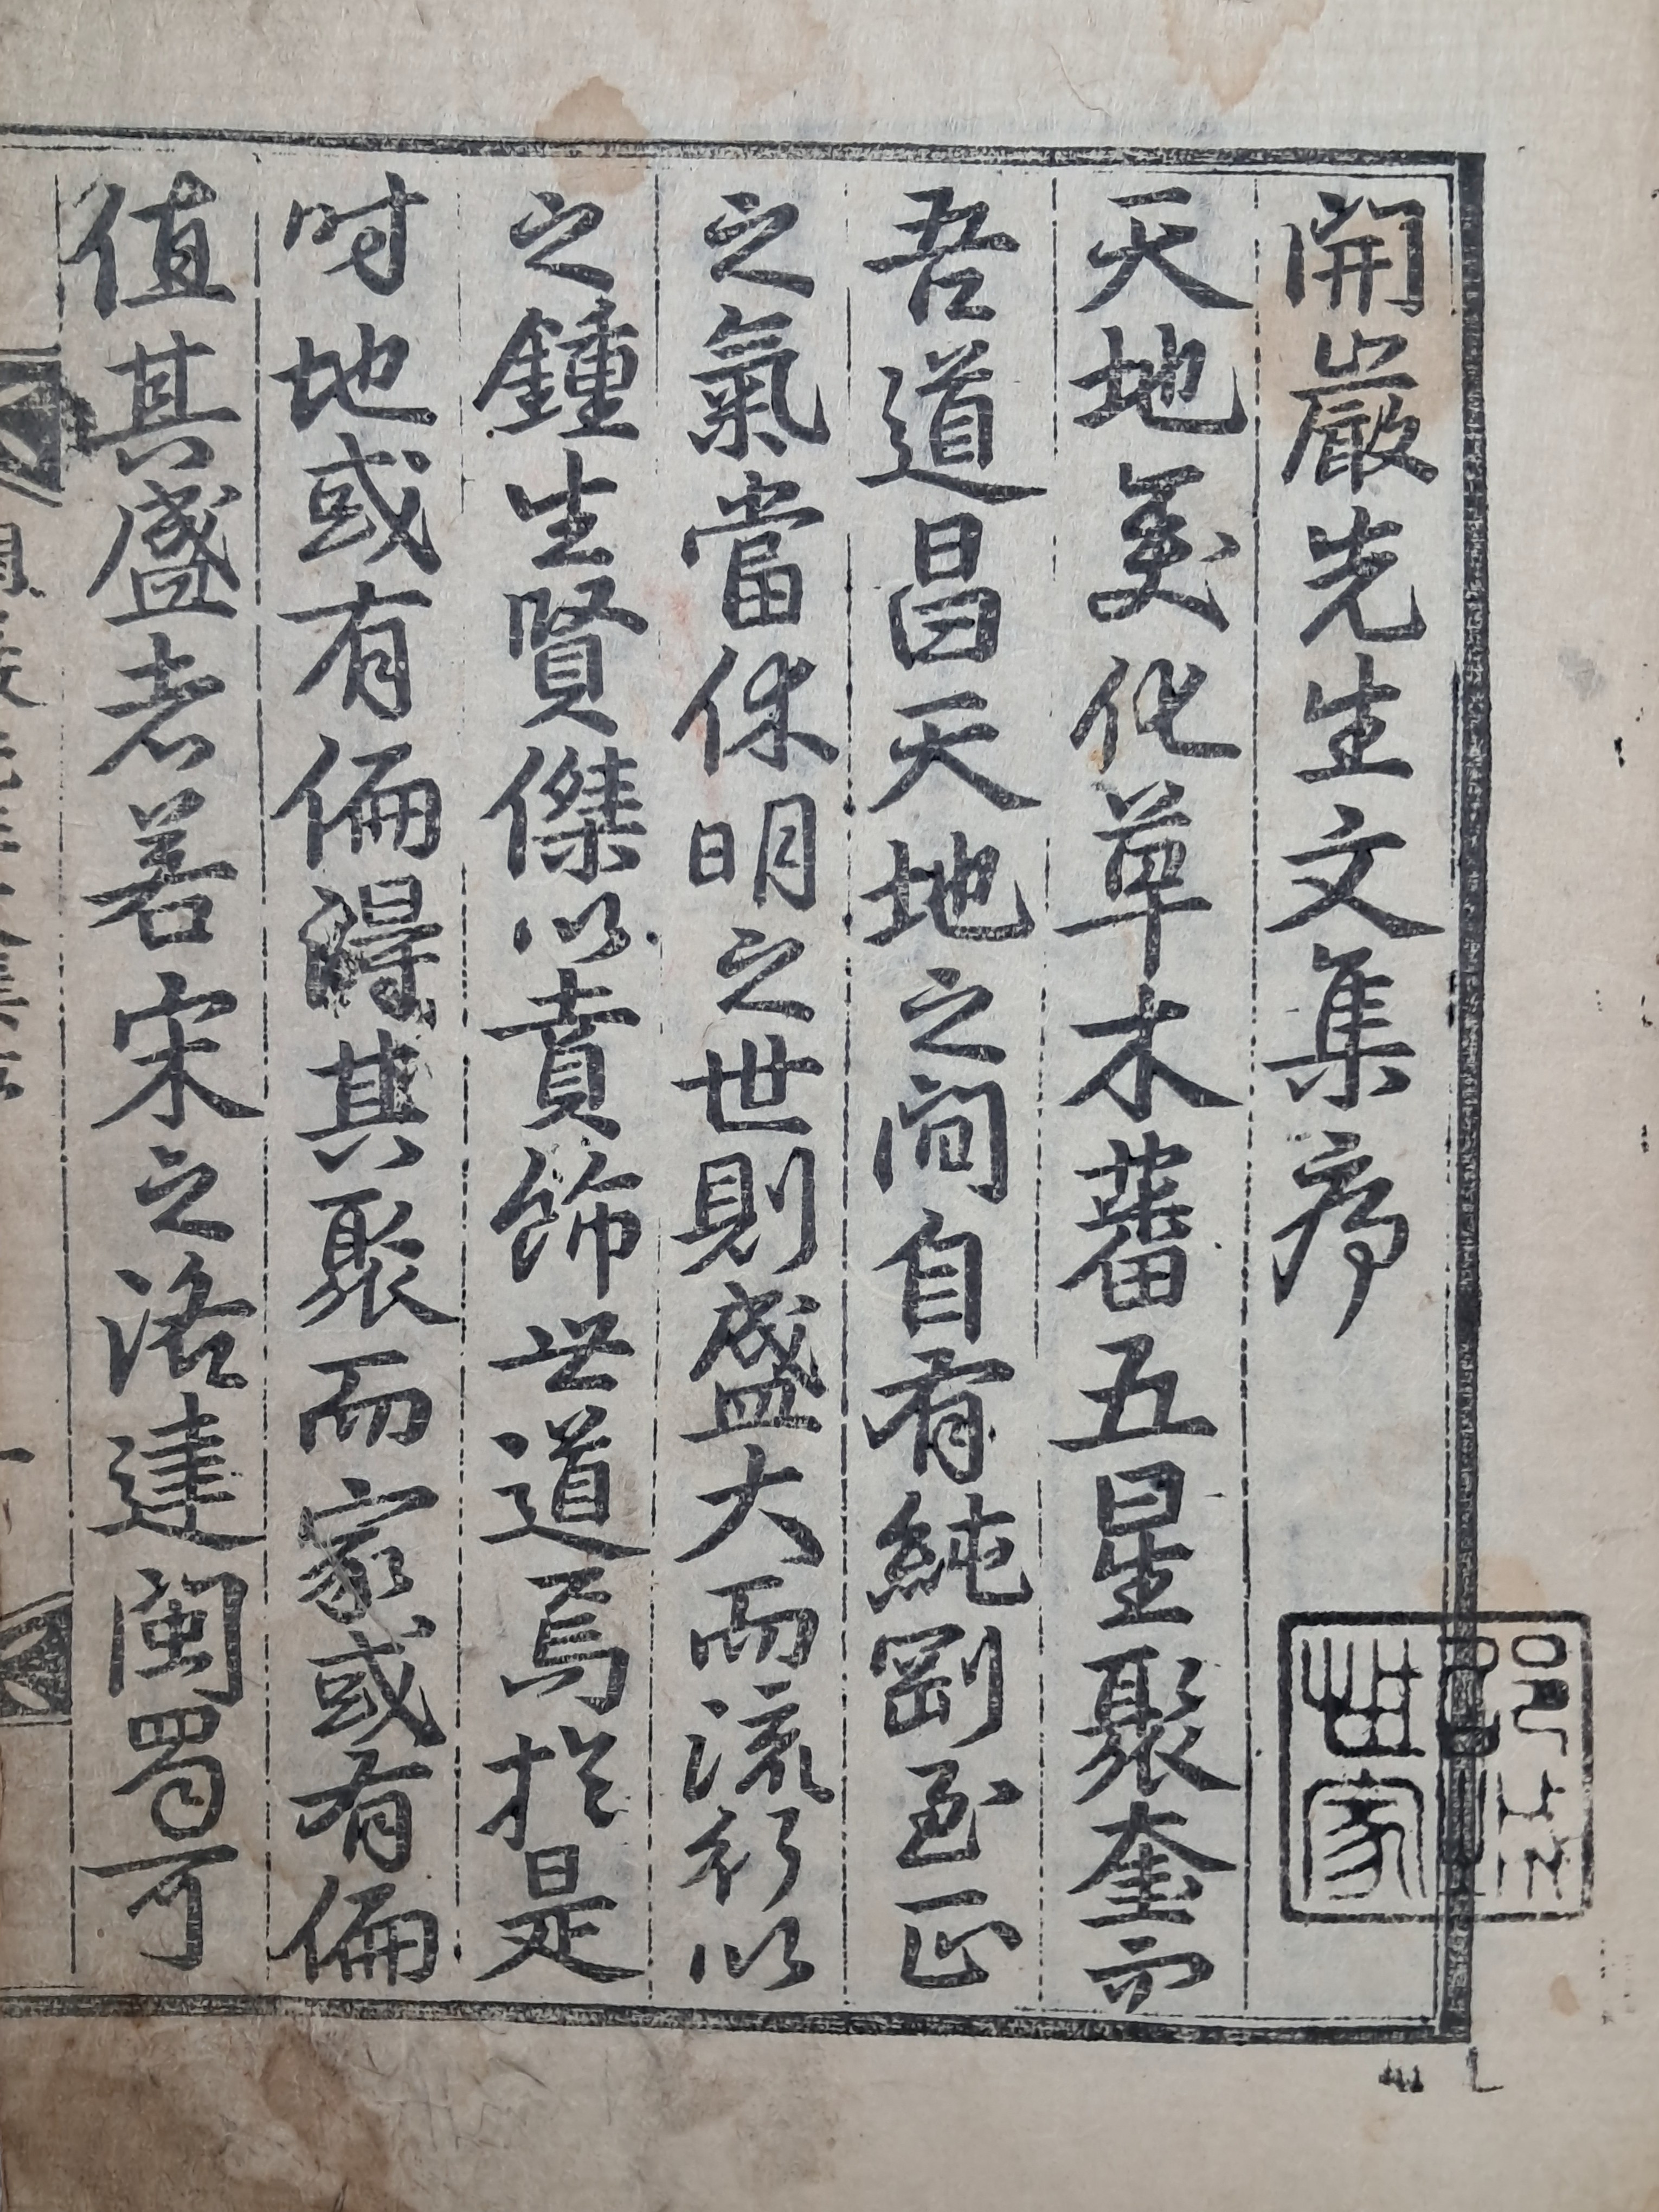 開巖先生文集序
天地変化草木蕃五星聚奎而
吾道昌天地之間自有純剛至正
之氣當休明之世則盛大而流行以
之鍾生賢傑以賁飾世道焉於是
时地或有偏淂其聚而家或有偏
值其盛者若宋之洛建閩蜀可
世家